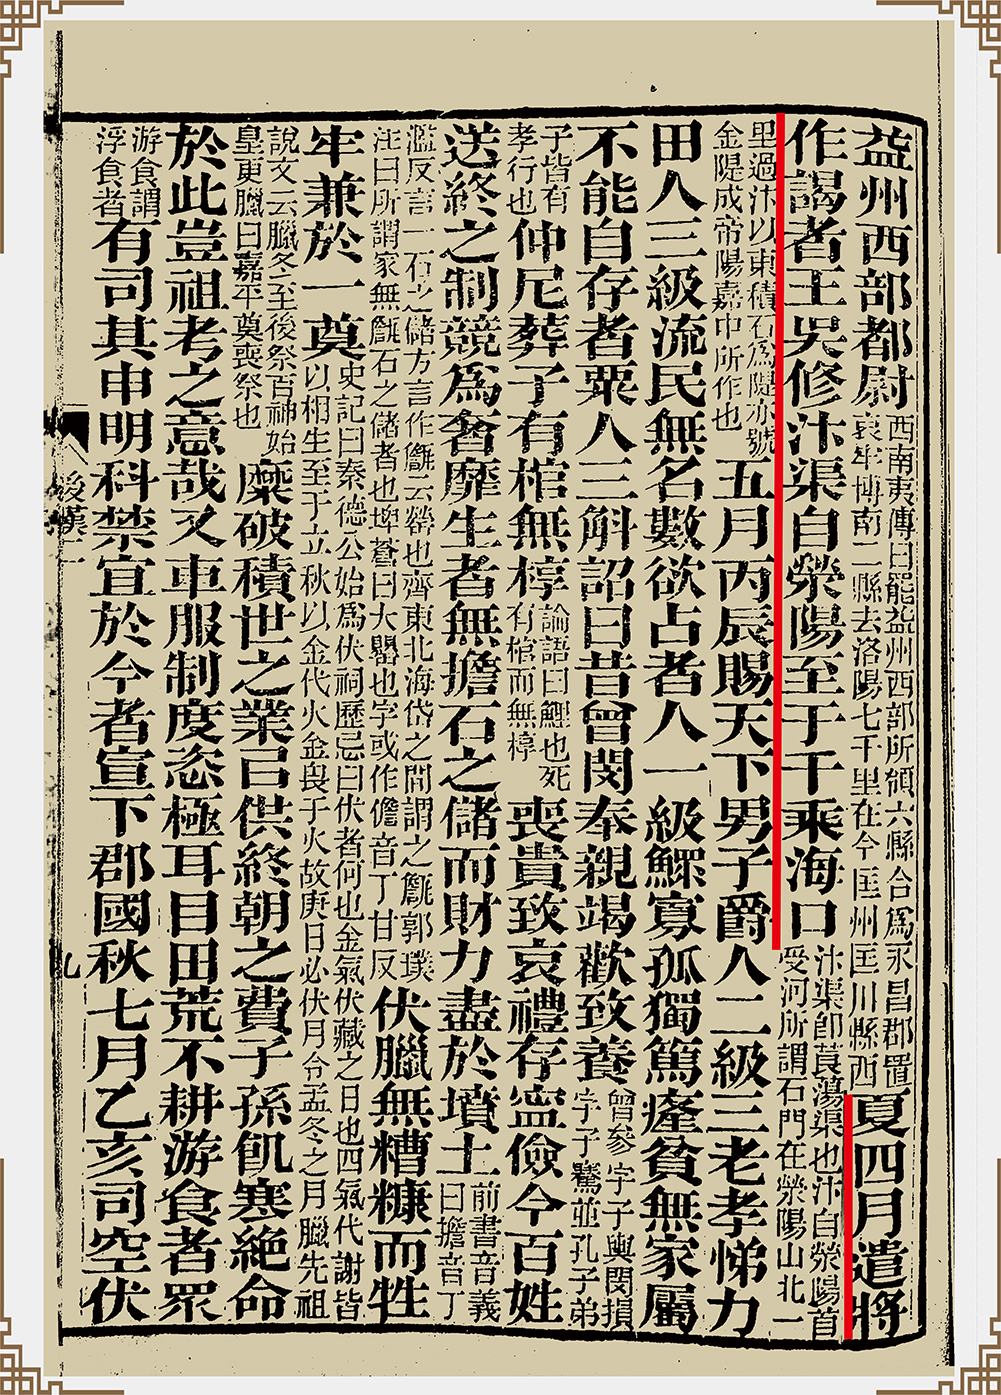 益州西部都尉西南夷傳曰罷益州西部所領六縣合爲永昌郡置哀牢博南二縣去洛陽七千里在今匡州匡川縣西夏四月遣將
作謁者王吳修汴渠自滎陽至于千乘海口汴渠卽莨蕩渠也汴自滎陽首受河所謂石門在滎陽山北一
里過汴以東積石爲隄亦號金隄成帝陽嘉中所作也五月丙辰賜天下男子爵人二級三老孝悌力
田人三級流民無名數欲占者人一級鰥寡孤獨篤癃貧無家屬
不能自存者粟人三斛詔曰昔曾閔奉親竭歡致養曾參字子輿閔損字子騫並孔子弟
子皆有孝行也仲尼葬子有棺無椁論語曰鯉也死有棺而無椁喪貴致哀禮存寧儉今百姓
送終之制競爲奢靡生者無擔石之儲而財力盡於墳土前書音義曰擔音丁
濫反言一石之儲方言作甔云罃也齊東北海岱之閒謂之甔郭璞注曰所謂家無甔石之儲者也埤蒼曰大罌也字或作儋音丁甘反伏臘無糟糠而牲
牢兼於一奠史記曰秦德公始爲伏祠歷忌曰伏者何也金氣伏藏之日也四氣代謝皆以相生至于立秋以金代火金畏于火故庚日必伏月令孟冬之月臘先祖
說文云臘冬至後祭百神始皇更臘曰嘉平奠喪祭也糜破積世之業以供終朝之費子孫飢寒絕命
於此豈祖考之意哉又車服制度恣極耳目田荒不耕游食者眾
游食謂浮食者有司其申明科禁宜於今者宣下郡國秋七月乙亥司空伏
後漢二
九